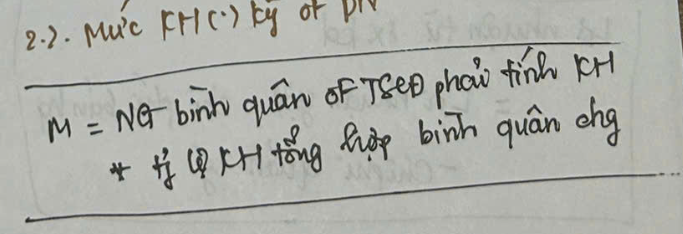 2.2. Mức KH (.) kỳ of DN
M = NG bình quân OF TSCĐ phải tính KH
* tỷ lệ KH tổng hợp bình quân chg